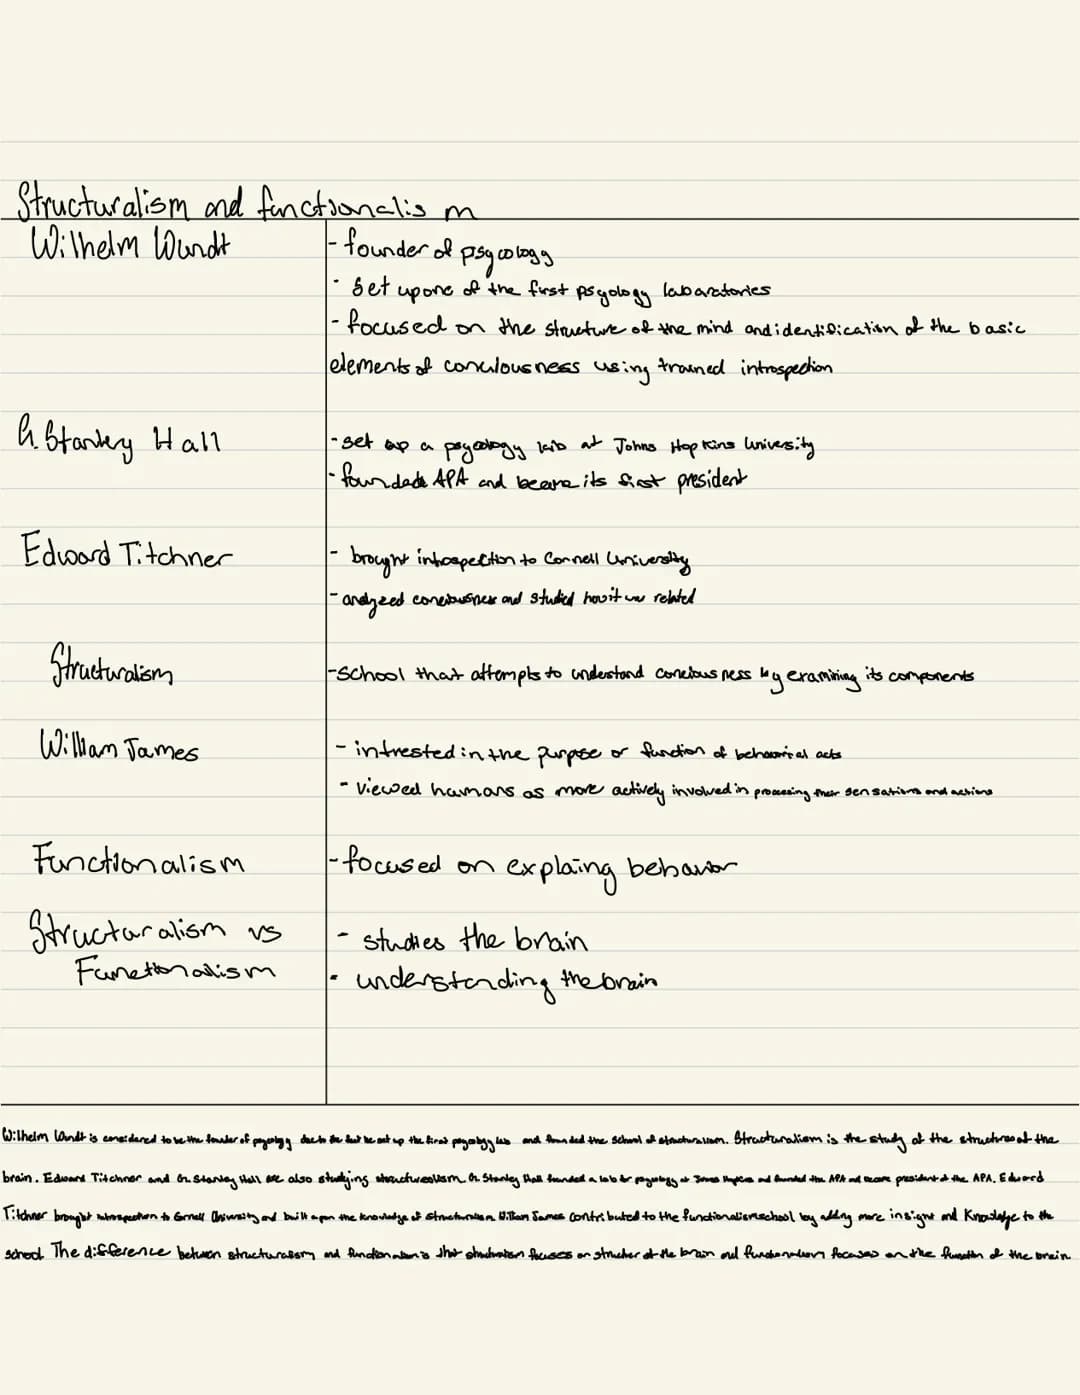 Structuralism and functionalism
Wilhelm Wundt
- founder of psycology
- Set up one of the first psycology labaratories
- focused on the structure of the mind and identification of the basic
elements of conciousness using trained introspection
G. Stanley Hall
- set up a psycology lab at Johns Hopkins University
- founded APA and became its first president
Edward Titchner
- brought introspection to Cornell University
- analyzed conciousness and studied how it was related
Structuralism
- school that attempts to understand concious ness by examining its components
William James
- intrested in the purpose or function of behavioral acts
- Viewed humans as more actively involved in processing their sensations and actions
Functionalism
- focused on explaing behavior
Structuralism vs
Functionalism
- studies the brain
- understanding the brain
Wilhelm Wundt is considered to be the founder of psycology due to the fact he set up the first psycology lab and founded the school of structuralism. Structuralism is the study of the structures of the
brain. Edward Titchner and G. Stanley Hall are also studying structuralism. G. Stanley Hall founded a lab for psycology at Hopkins and founded the APA and became president of the APA. Edward
Titchner brought introspection to Cornell University and built upon the knowledge of structuralism. William James contributed to the functionalism school by adding more insight and Knowledge to the
school. The difference between structuralism and functionalism is that structuralism focuses on structure of the brain and functionalism focuses on the function of the brain